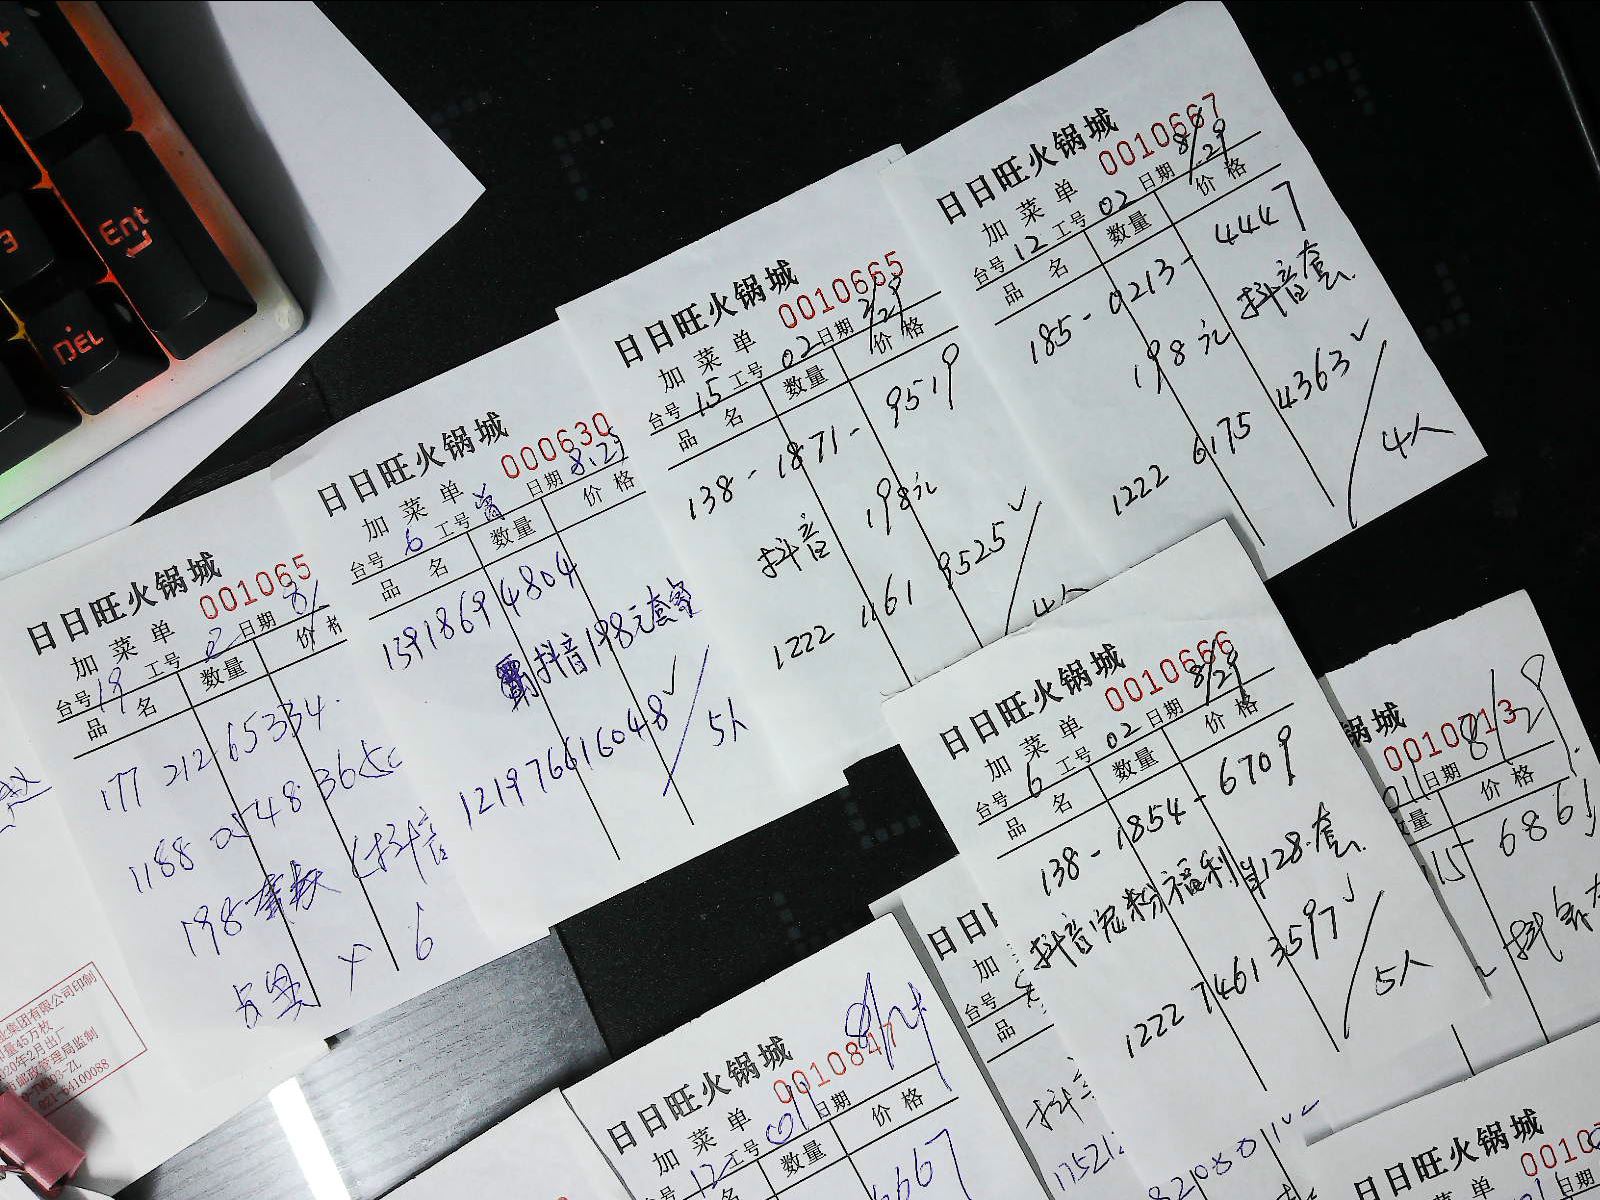 Ent
3
DEL
日日旺火锅城
加菜单 001065
台号 19 工号 日期 8/
品名 数量 价格
177 212 65334.
198套
(抖音
× 6
日日旺火锅城
加菜单 000630
台号 6 工号 日期 8.29
品名 数量 价格
1391869 4804
抖音198元套餐
1219766616048 ✓ / 5人
日日旺火锅城
加菜单 0010665
台号 15 工号 02 日期 8/29
品名 数量 价格
138-1871-9519
抖音 198元
1222 1161 9525 ✓ / 4人
日日旺火锅城
加菜单 0010667
台号 12 工号 02 日期 8/29
品名 数量 价格
185-0213-4447
198元 抖音套.
1222 6175 4363 ✓ / 4人
日日旺火锅城
加菜单 0010666
台号 6 工号 02 日期 8/29
品名 数量 价格
138-1854-6709
抖音宠粉福利单128.套.
1222 7461 3597 ✓ / 5人
锅城
0010713
011 日期 8/29
数量 价格
15-6861
日日
加
台号
品
抖音
17521
日日旺火锅城
加菜单 0010847
台号 12 工号 01 日期
品名 数量 价格
6667
日日旺火锅城
加菜单 0010
业集团有限公司印制
量45万枚
020年2月出厂
邮政管理局监制